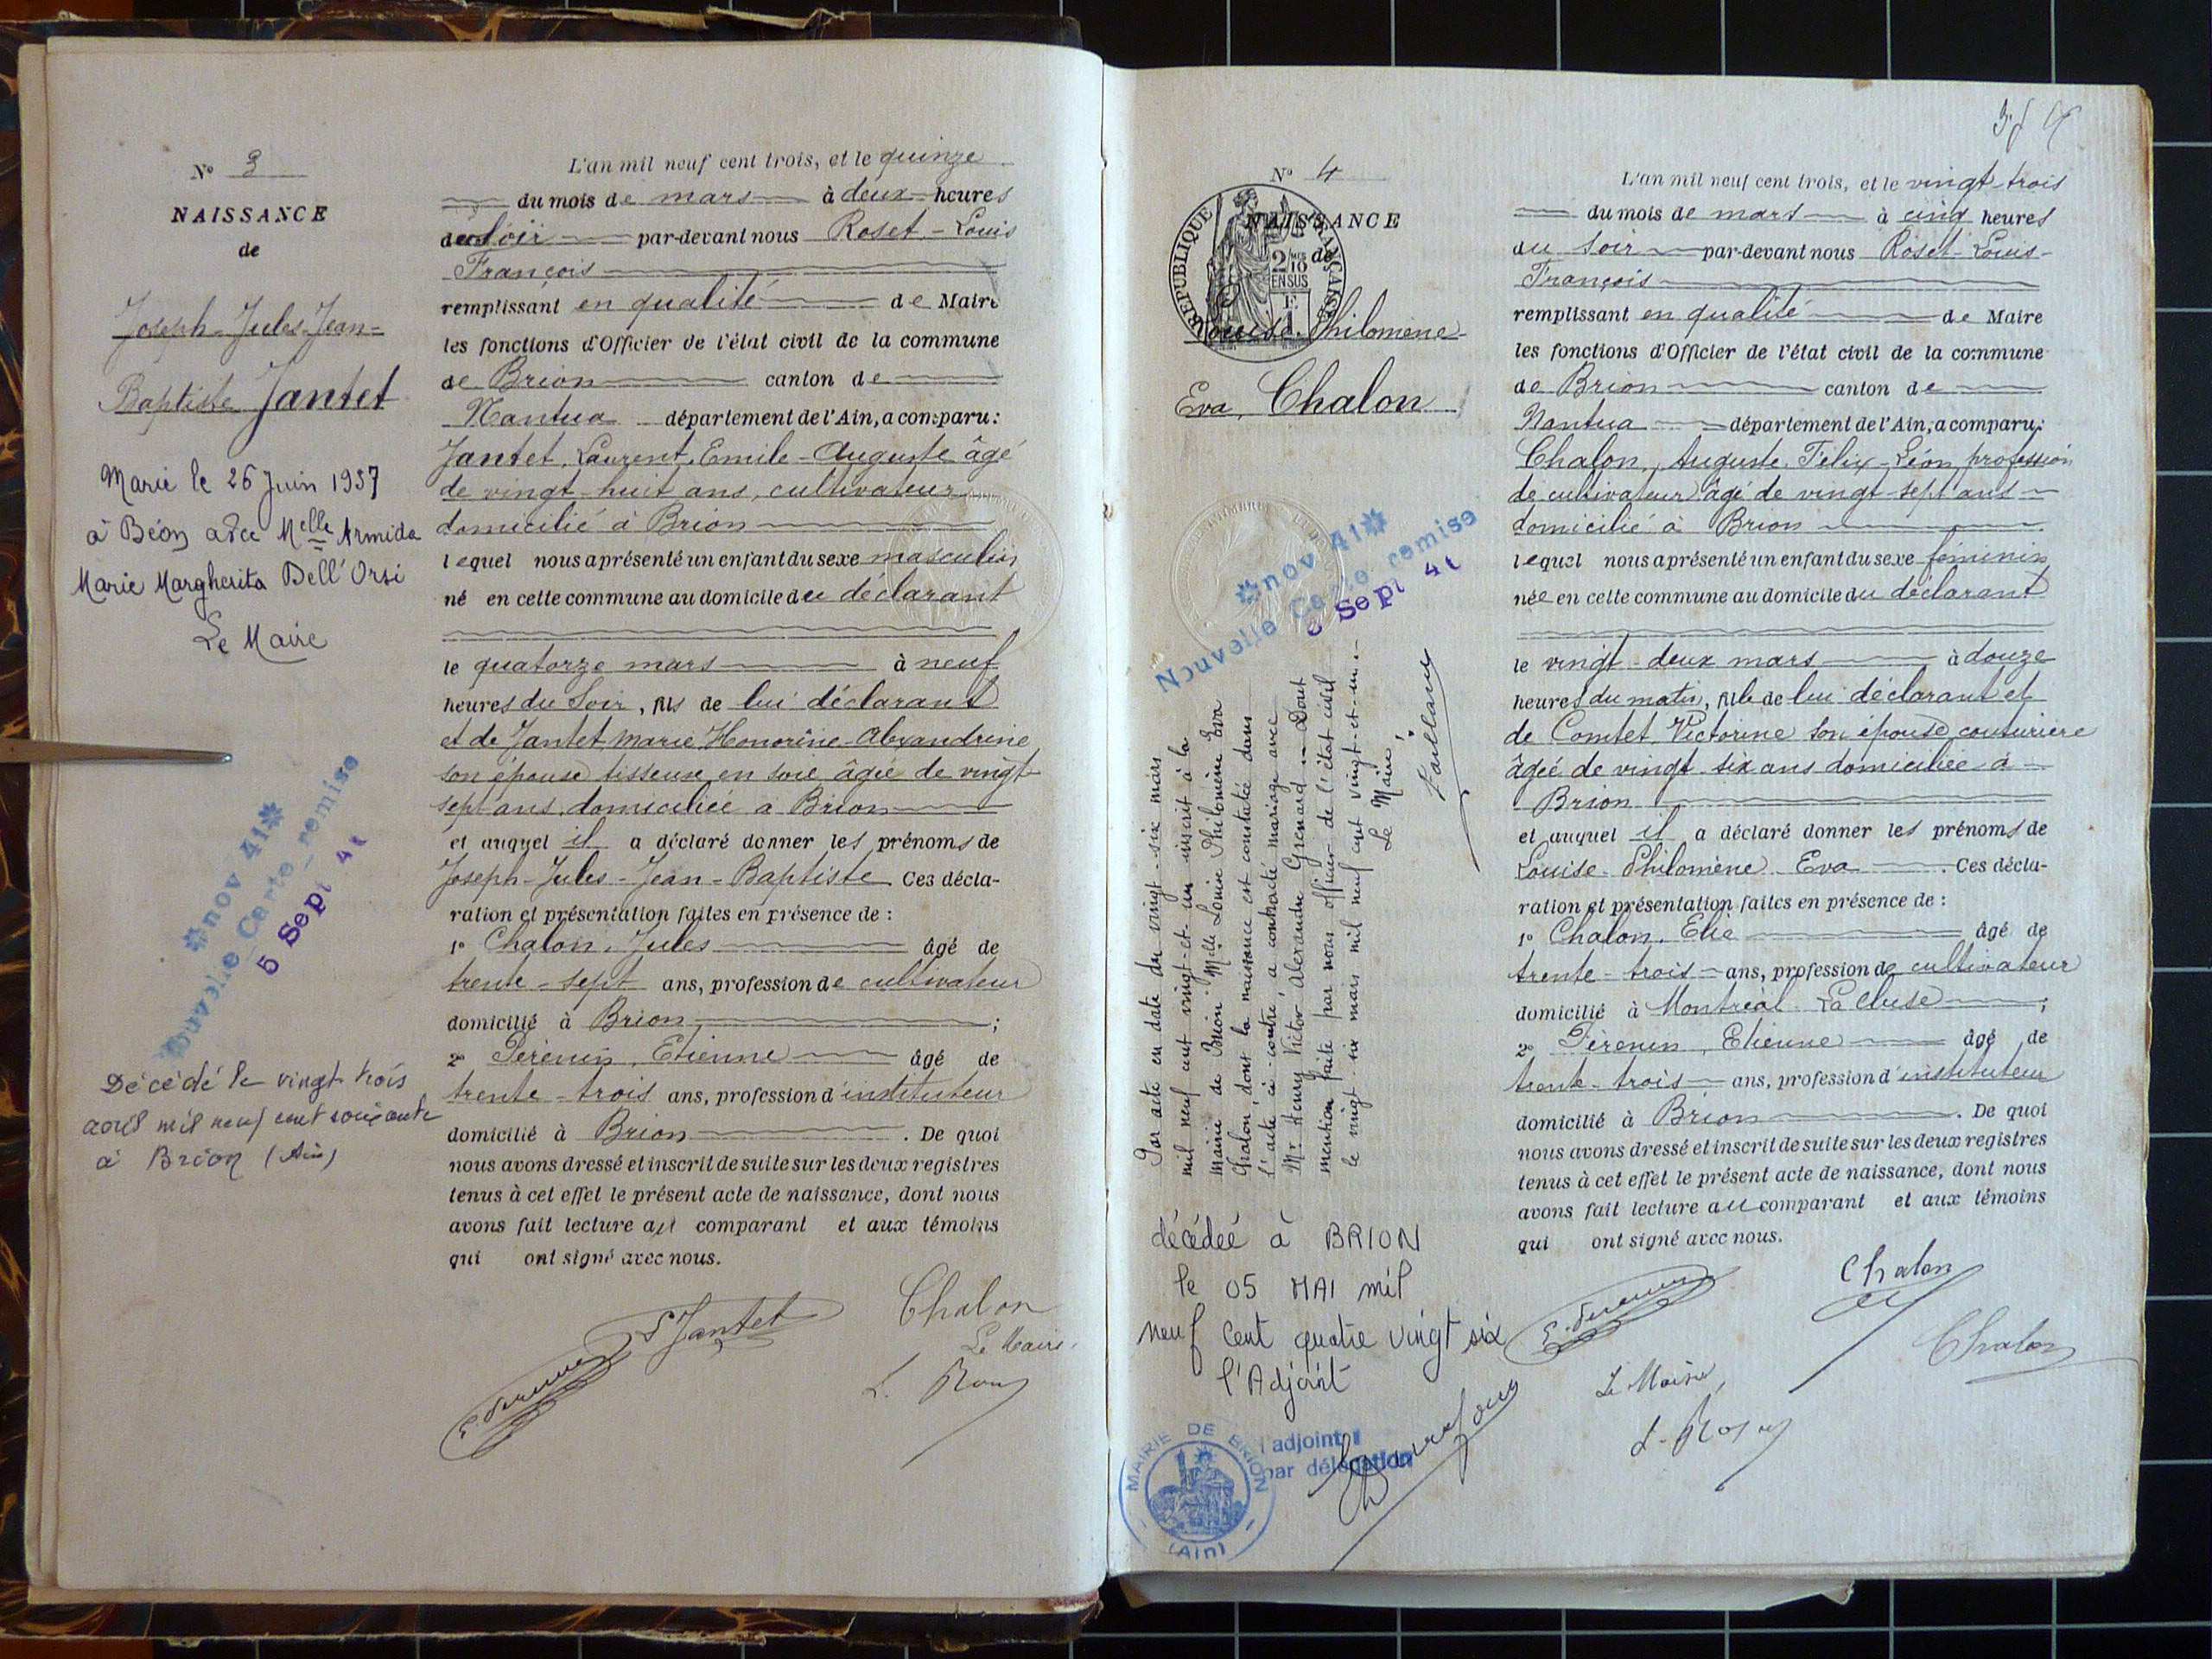 N° 3
NAISSANCE
de
Joseph-Jules-Jean-
Baptiste Jantet
Marié le 26 Juin 1937
à Béon avec Melle Armida
Marie Margherita Dell'Orsi
Le Maire
✻nov 41✻
Nouvelle Carte remise
5 Sept 41
Décédé le vingt trois
avril mil neuf cent soixante
à Brion (Ain)
L'an mil neuf cent trois, et le quinze
du mois de mars à deux heures
du soir par-devant nous Roset-Louis
François
remplissant en qualité de Maire
les fonctions d'Officier de l'état civil de la commune
de Brion canton de
Nantua département de l'Ain, a comparu:
Jantet, Laurent, Emile-Auguste âgé
de vingt-huit ans, cultivateur
domicilié à Brion
lequel nous a présenté un enfant du sexe masculin
né en cette commune au domicile du déclarant
le quatorze mars à neuf
heures du soir, fils de lui déclarant
et de Jantet Marie Honorine-Alexandrine
son épouse tisseuse en soie âgée de vingt
sept ans, domiciliée à Brion
et auquel il a déclaré donner les prénoms de
Joseph-Jules-Jean-Baptiste Ces décla-
ration et présentation faites en présence de :
1° Chalon, Jules âgé de
trente-sept ans, profession de cultivateur
domicilié à Brion ;
2° Pérenin, Etienne âgé de
trente-trois ans, profession d'instituteur
domicilié à Brion . De quoi
nous avons dressé et inscrit de suite sur les deux registres
tenus à cet effet le présent acte de naissance, dont nous
avons fait lecture au comparant et aux témoins
qui ont signé avec nous.
Chalon
Jantet
Le Maire,
N° 4
NAISSANCE
de
REPUBLIQUE FRANÇAISE
2/10
EN SUS
Louise-Philomène-
Eva, Chalon
✻nov 41✻
Nouvelle Carte remise
5 Sept 41
Par acte en date du vingt-six mars
mil neuf cent vingt-et-un inscrit à la
mairie de Brion Melle Louise Philomène Eva
Chalon, dont la naissance est constatée dans
l'acte ci-contre, a contracté mariage avec
Mr Henry Victor Alexandre Grenard.- Dont
mention faite par nous officier de l'état civil
le vingt-six mars mil neuf cent vingt-et-un.-
Le Maire,
décédée à BRION
le 05 MAI mil
neuf cent quatre vingt six
l'Adjoint
l'adjoint
par délégation
MAIRIE DE BRION
(Ain)
L'an mil neuf cent trois, et le vingt-trois
du mois de mars à cinq heures
du soir par-devant nous Roset-Louis-
François
remplissant en qualité de Maire
les fonctions d'Officier de l'état civil de la commune
de Brion canton de
Nantua département de l'Ain, a comparu:
Chalon, Auguste, Félix-Léon, profession
de cultivateur âgé de vingt-sept ans
domicilié à Brion
lequel nous a présenté un enfant du sexe féminin
née en cette commune au domicile du déclarant
le vingt-deux mars à douze
heures du matin, fille de lui déclarant et
de Comtet Victorine son épouse couturière
âgée de vingt-six ans domiciliée à
Brion
et auquel il a déclaré donner les prénoms de
Louise-Philomène Eva . Ces décla-
ration et présentation faites en présence de :
1° Chalon, Elie âgé de
trente-trois ans, profession de cultivateur
domicilié à Montréal La Cluse ;
2° Pérenin, Etienne âgé de
trente-trois ans, profession d'instituteur
domicilié à Brion . De quoi
nous avons dressé et inscrit de suite sur les deux registres
tenus à cet effet le présent acte de naissance, dont nous
avons fait lecture au comparant et aux témoins
qui ont signé avec nous.
Chalon
Chalon
Le Maire,